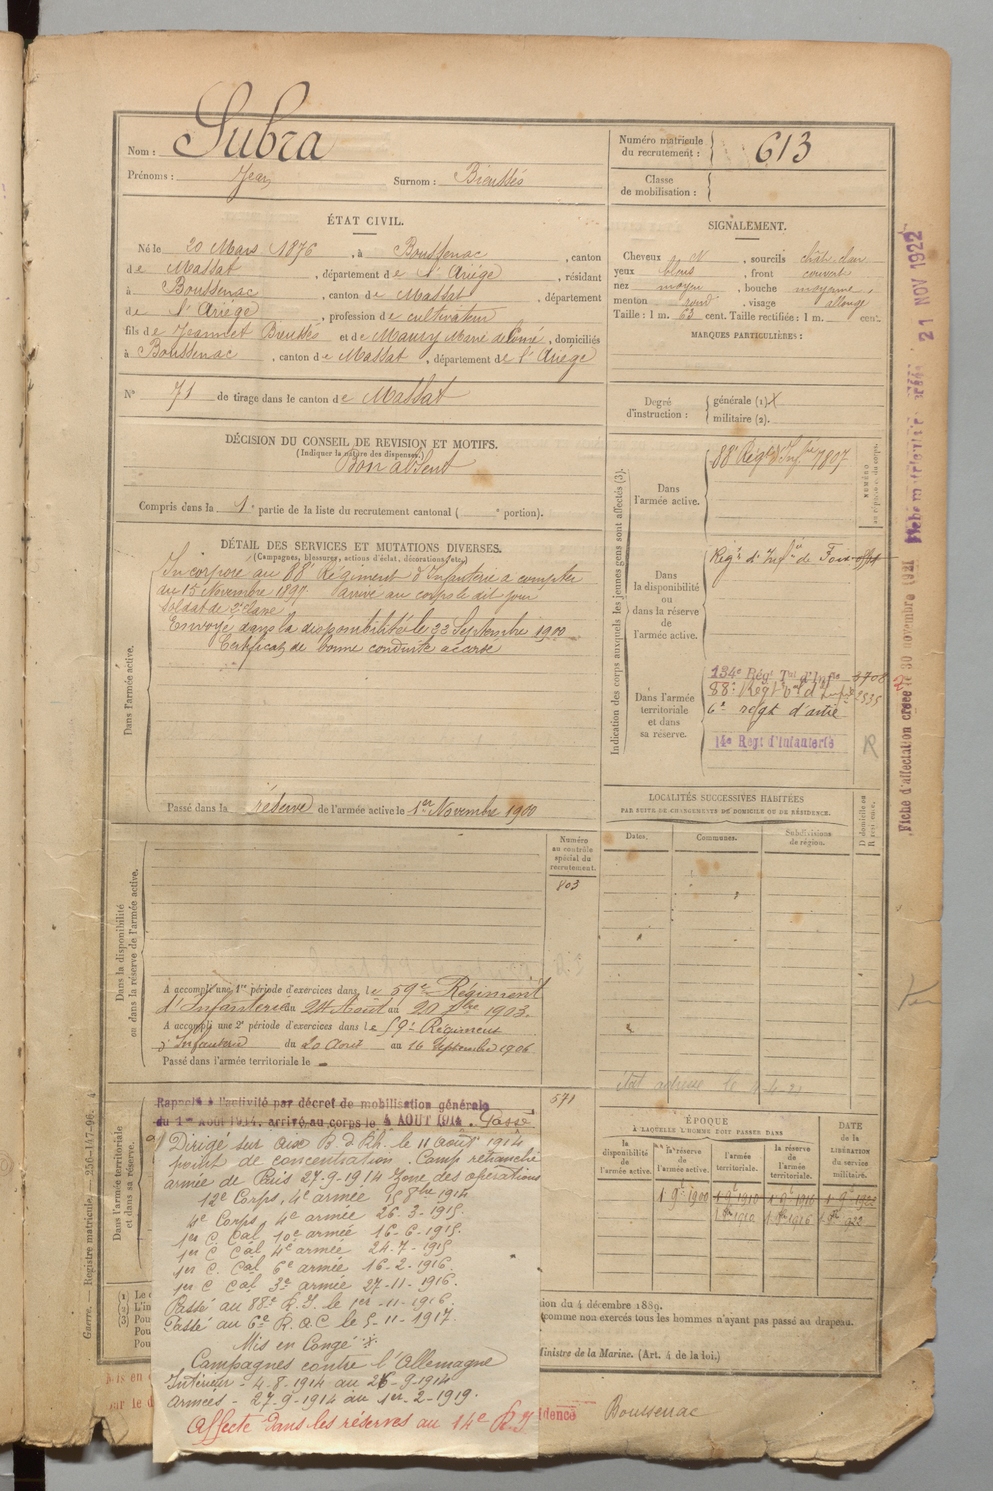 Nom : Subra
Prénoms : Jean Surnom : Bieussés
Numéro matricule du recrutement : 613
Classe de mobilisation :
ÉTAT CIVIL.
Né le 20 Mars 1876, à Boussenac, canton
de Massat, département de l'Ariège, résidant
à Boussenac, canton de Massat, département
de l'Ariège, profession de cultivateur
fils de Jeannet Bieussés et de Maury Marie, domiciliés
à Boussenac, canton de Massat, département de l'Ariège
N° 71 de tirage dans le canton de Massat
SIGNALEMENT.
Cheveux N, sourcils chât. clair
yeux bleus, front couvert
nez moyen, bouche moyenne,
menton rond, visage allongé
Taille : 1 m. 63 cent. Taille rectifiée : 1 m. cent.
MARQUES PARTICULIÈRES :
Degré d'instruction : générale (1) X
militaire (2).
DÉCISION DU CONSEIL DE REVISION ET MOTIFS.
(Indiquer la nature des dispenses.)
Bon absent
Compris dans la 1e partie de la liste du recrutement cantonal ( e portion).
DÉTAIL DES SERVICES ET MUTATIONS DIVERSES.
(Campagnes, blessures, actions d'éclat, décorations, etc.)
Dans l'armée active.
Incorporé au 88e Régiment d'Infanterie à compter
du 15 Novembre 1897. Arrivé au corps le dit jour
soldat de 2e classe
Envoyé dans la disponibilité le 22 Septembre 1900
Certificat de bonne conduite accordé
Passé dans la réserve de l'armée active le 1er Novembre 1900
Indication des corps auxquels les jeunes gens sont affectés (3).
Dans l'armée active.
88e Régt d'Inf.rie 7807
Dans la disponibilité ou dans la réserve de l'armée active.
Regt d'Infie de Foix
Dans l'armée territoriale et dans sa réserve.
134e Régt Tal d'Infie 3708
88e Regt 2535
6e régt d'artie
14e Regt d'infanterie
R
LOCALITÉS SUCCESSIVES HABITÉES
PAR SUITE DE CHANGEMENTS DE DOMICILE OU DE RÉSIDENCE.
Dates. Communes. Subdivisions de région. D domicile ou R résidence.
Numéro au contrôle spécial du recrutement.
803
Dans la disponibilité ou dans la réserve de l'armée active.
A accompli une 1re période d'exercices dans le 59e Régiment
d'Infanterie du 24 Août au 20 7bre 1903.
A accompli une 2e période d'exercices dans le 59e Régiment
d'Infanterie du 20 Août au 16 Septembre 1906
Passé dans l'armée territoriale le
571
Dans l'armée territoriale et dans sa réserve.
Rappelé à l'activité par décret de mobilisation générale
du 1er Août 1914, arrivé au corps le 4 AOUT 1914. Passé
Dirigé sur aux B d Rh. le 11 août 1914
point de concentration. Camp retranché
armée de Paris 27-9-1914 Zone des opérations
12e Corps, 4e armée 18 8bre 1914
4e Corps, 4e armée 26-3-1915.
1er C. Cal 10e armée 16-6-1915.
1er C Cal 4e armée 24-7-1915
1er C. Cal 6e armée 16-2-1916.
1er C Cal 3e armée 27-11-1916.
Passé au 88e R.I. le 1er-11-1916.
Passé au 6e R.A.C le 5-11-1917.
Mis en Congé
Campagnes contre l'Allemagne
Intérieur - 4-8-1914 au 26-9-1914
armées - 27-9-1914 au 1er-2-1919.
Affecté dans les réserves au 14e R.I
état adresse le
ÉPOQUE
À LAQUELLE L'HOMME DOIT PASSER DANS
la disponibilité de l'armée active. la réserve de l'armée active. l'armée territoriale. la réserve de l'armée territoriale. DATE de la LIBÉRATION du service militaire.
1 9bre 1900 1 9bre 1910 1 9bre 1916 1 9bre 1922
tion du 4 décembre 1889.
comme non exercés tous les hommes n'ayant pas passé au drapeau.
Ministre de la Marine. (Art. 4 de la loi.)
idence Boussenac
Guerre. — Registre matricule. — 256-147-96.
Fiche d'affectation créée le 30 novembre 1921
21 NOV 1922